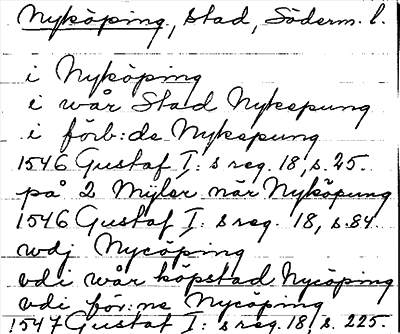 Nyköping, stad, Söderm. l.
i Nyköping
i wår Stad Nykepung
i förb:de Nykepung
1546 Gustaf I:s reg. 18, s. 25.
på 2 Mijler när Nyköpung
1546 Gustaf I:s reg. 18, s. 84
wdj Nycöping
vdi wår köpstad Nycöping
vdi för:ne Nycöping
1547 Gustaf I:s reg. 18, s. 225.